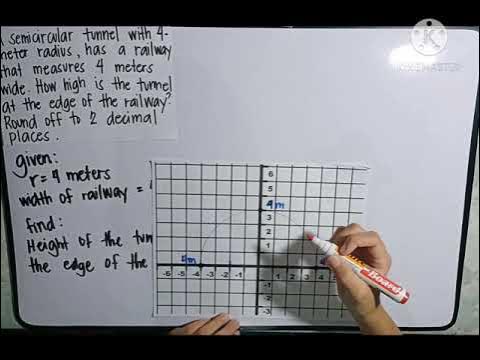 semicircular tunnel with 4-
meter radius, has a railway
that measures 4 meters
wide. How high is the tunnel
at the edge of the railway?
Round off to 2 decimal
places.
given:
r = 4 meters
width of railway =
find:
Height of the
the edge of the
6
5
4m
3
2
1
4m
-6 -5 -4 -3 -2 -1 1 2 3 4 5
-1
-2
-3
K
KINEMASTER
Board